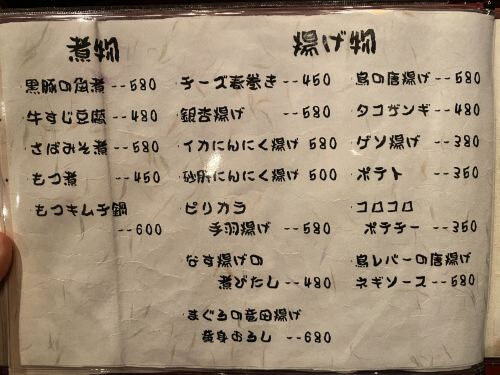 煮物
黒豚の角煮--580
牛すじ豆腐--480
さばみそ煮--580
もつ煮 --450
もつキムチ鍋
--600
揚げ物
チーズ春巻き--450
銀杏揚げ --580
イカにんにく揚げ 500
砂肝にんにく揚げ 500
ピリカラ
手羽揚げ--580
なす揚げの
煮びたし--480
まぐろの竜田揚げ
黄身おろし--680
鳥の唐揚げ--580
タコザンギ--480
ゲソ揚げ --380
ポテト --350
コロコロ
ポテチー--350
鳥レバーの唐揚げ
ネギソース--580